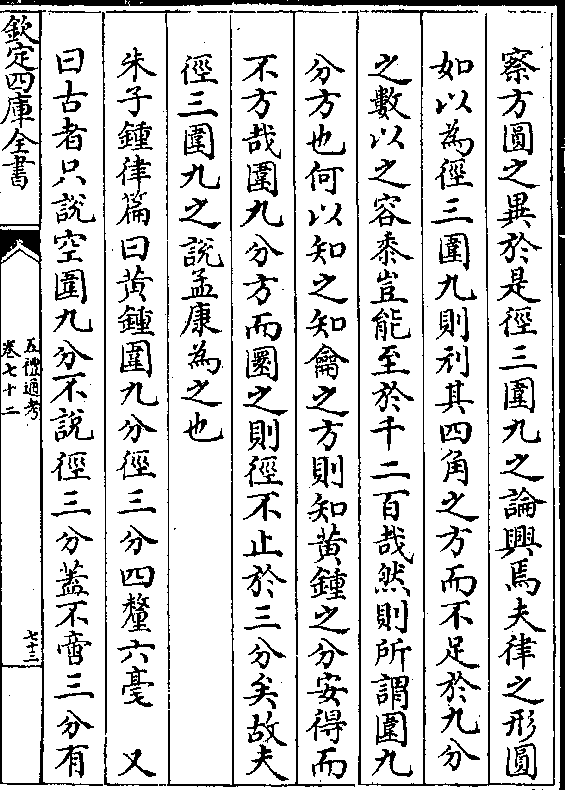 察方圓之異於是徑三圍九之論興焉夫律之形圓
如以為徑三圍九則刓其四角之方而不足於九分
之數以之容黍豈能至於千二百哉然則所謂圍九
分方也何以知之知龠之方則知黃鍾之分安得而
不方哉圍九分方而圜之則徑不止於三分矣故夫
徑三圍九之說孟康為之也
朱子鍾律篇曰黃鍾圍九分徑三分四釐六毫　又
曰古者只說空圍九分不說徑三分葢不啻三分有
欽定四庫全書
五禮通考
卷七十二
七十三